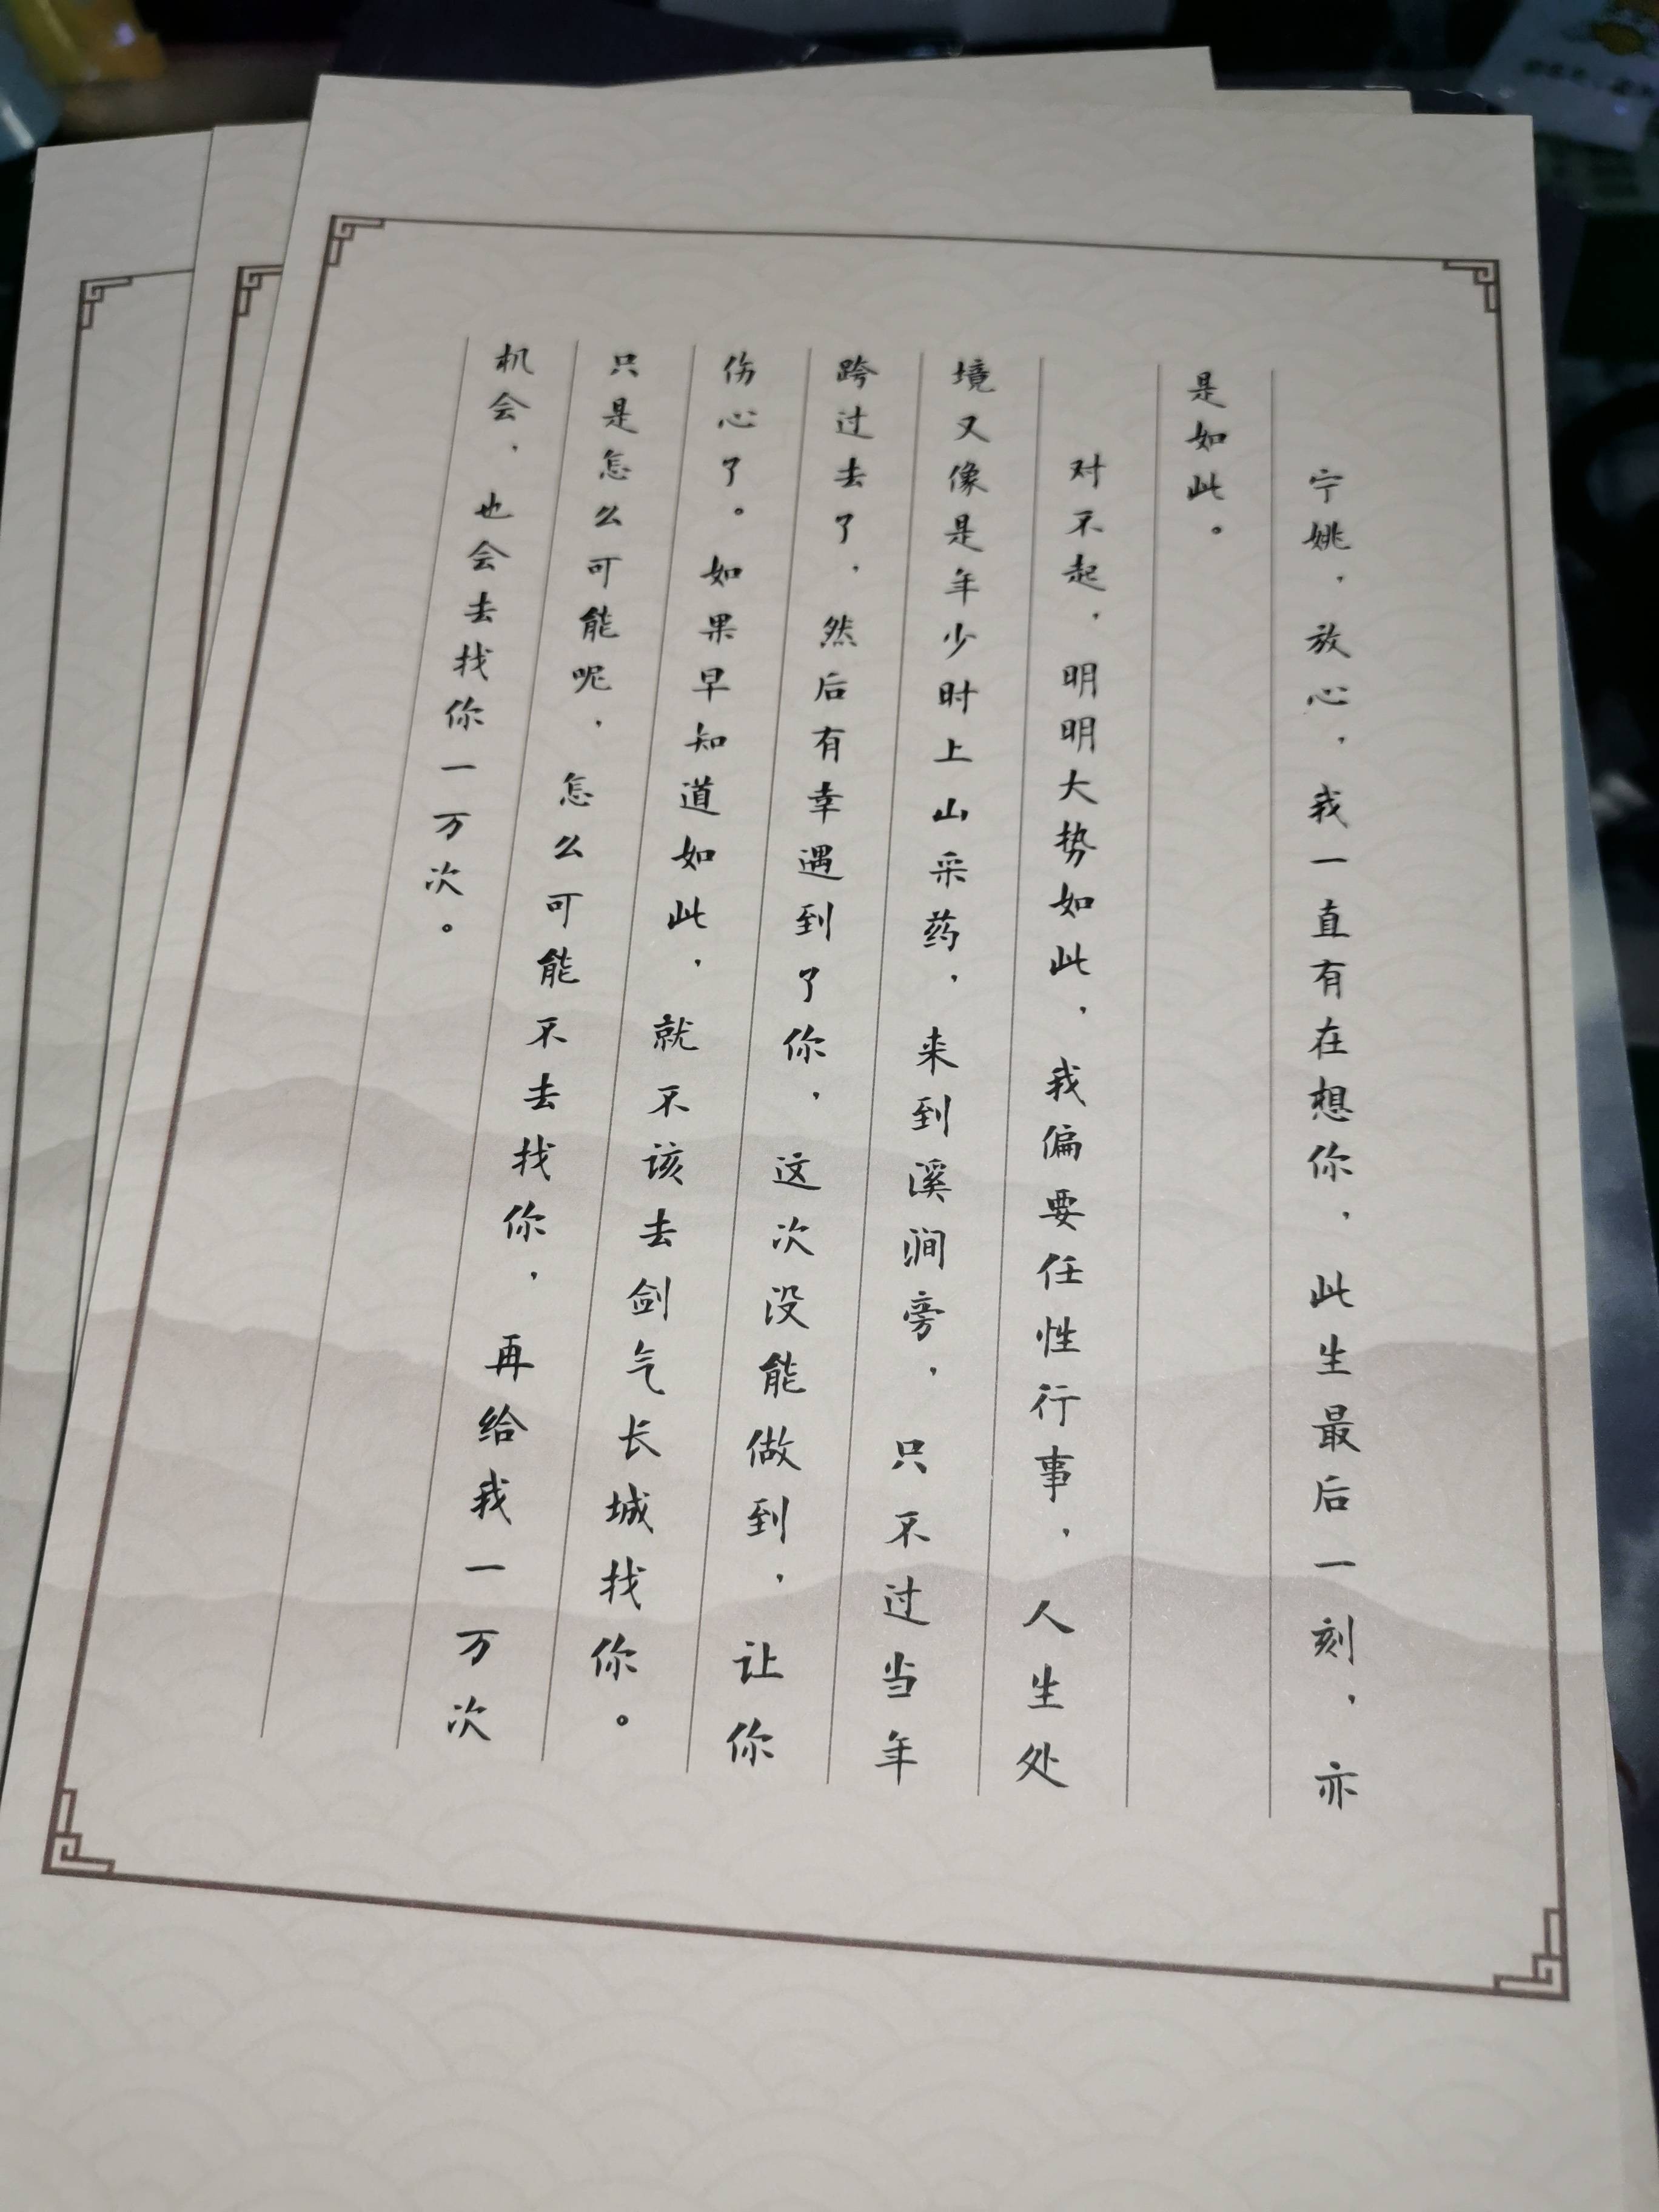 宁姚，放心，我一直有在想你，此生最后一刻，亦
是如此。
对不起，明明大势如此，我偏要任性行事，人生处
境又像是年少时上山采药，来到溪涧旁，只不过当年
跨过去了，然后有幸遇到了你，这次没能做到，让你
伤心了。如果早知道如此，就不该去剑气长城找你。
只是怎么可能呢，怎么可能不去找你，再给我一万次
机会，也会去找你一万次。